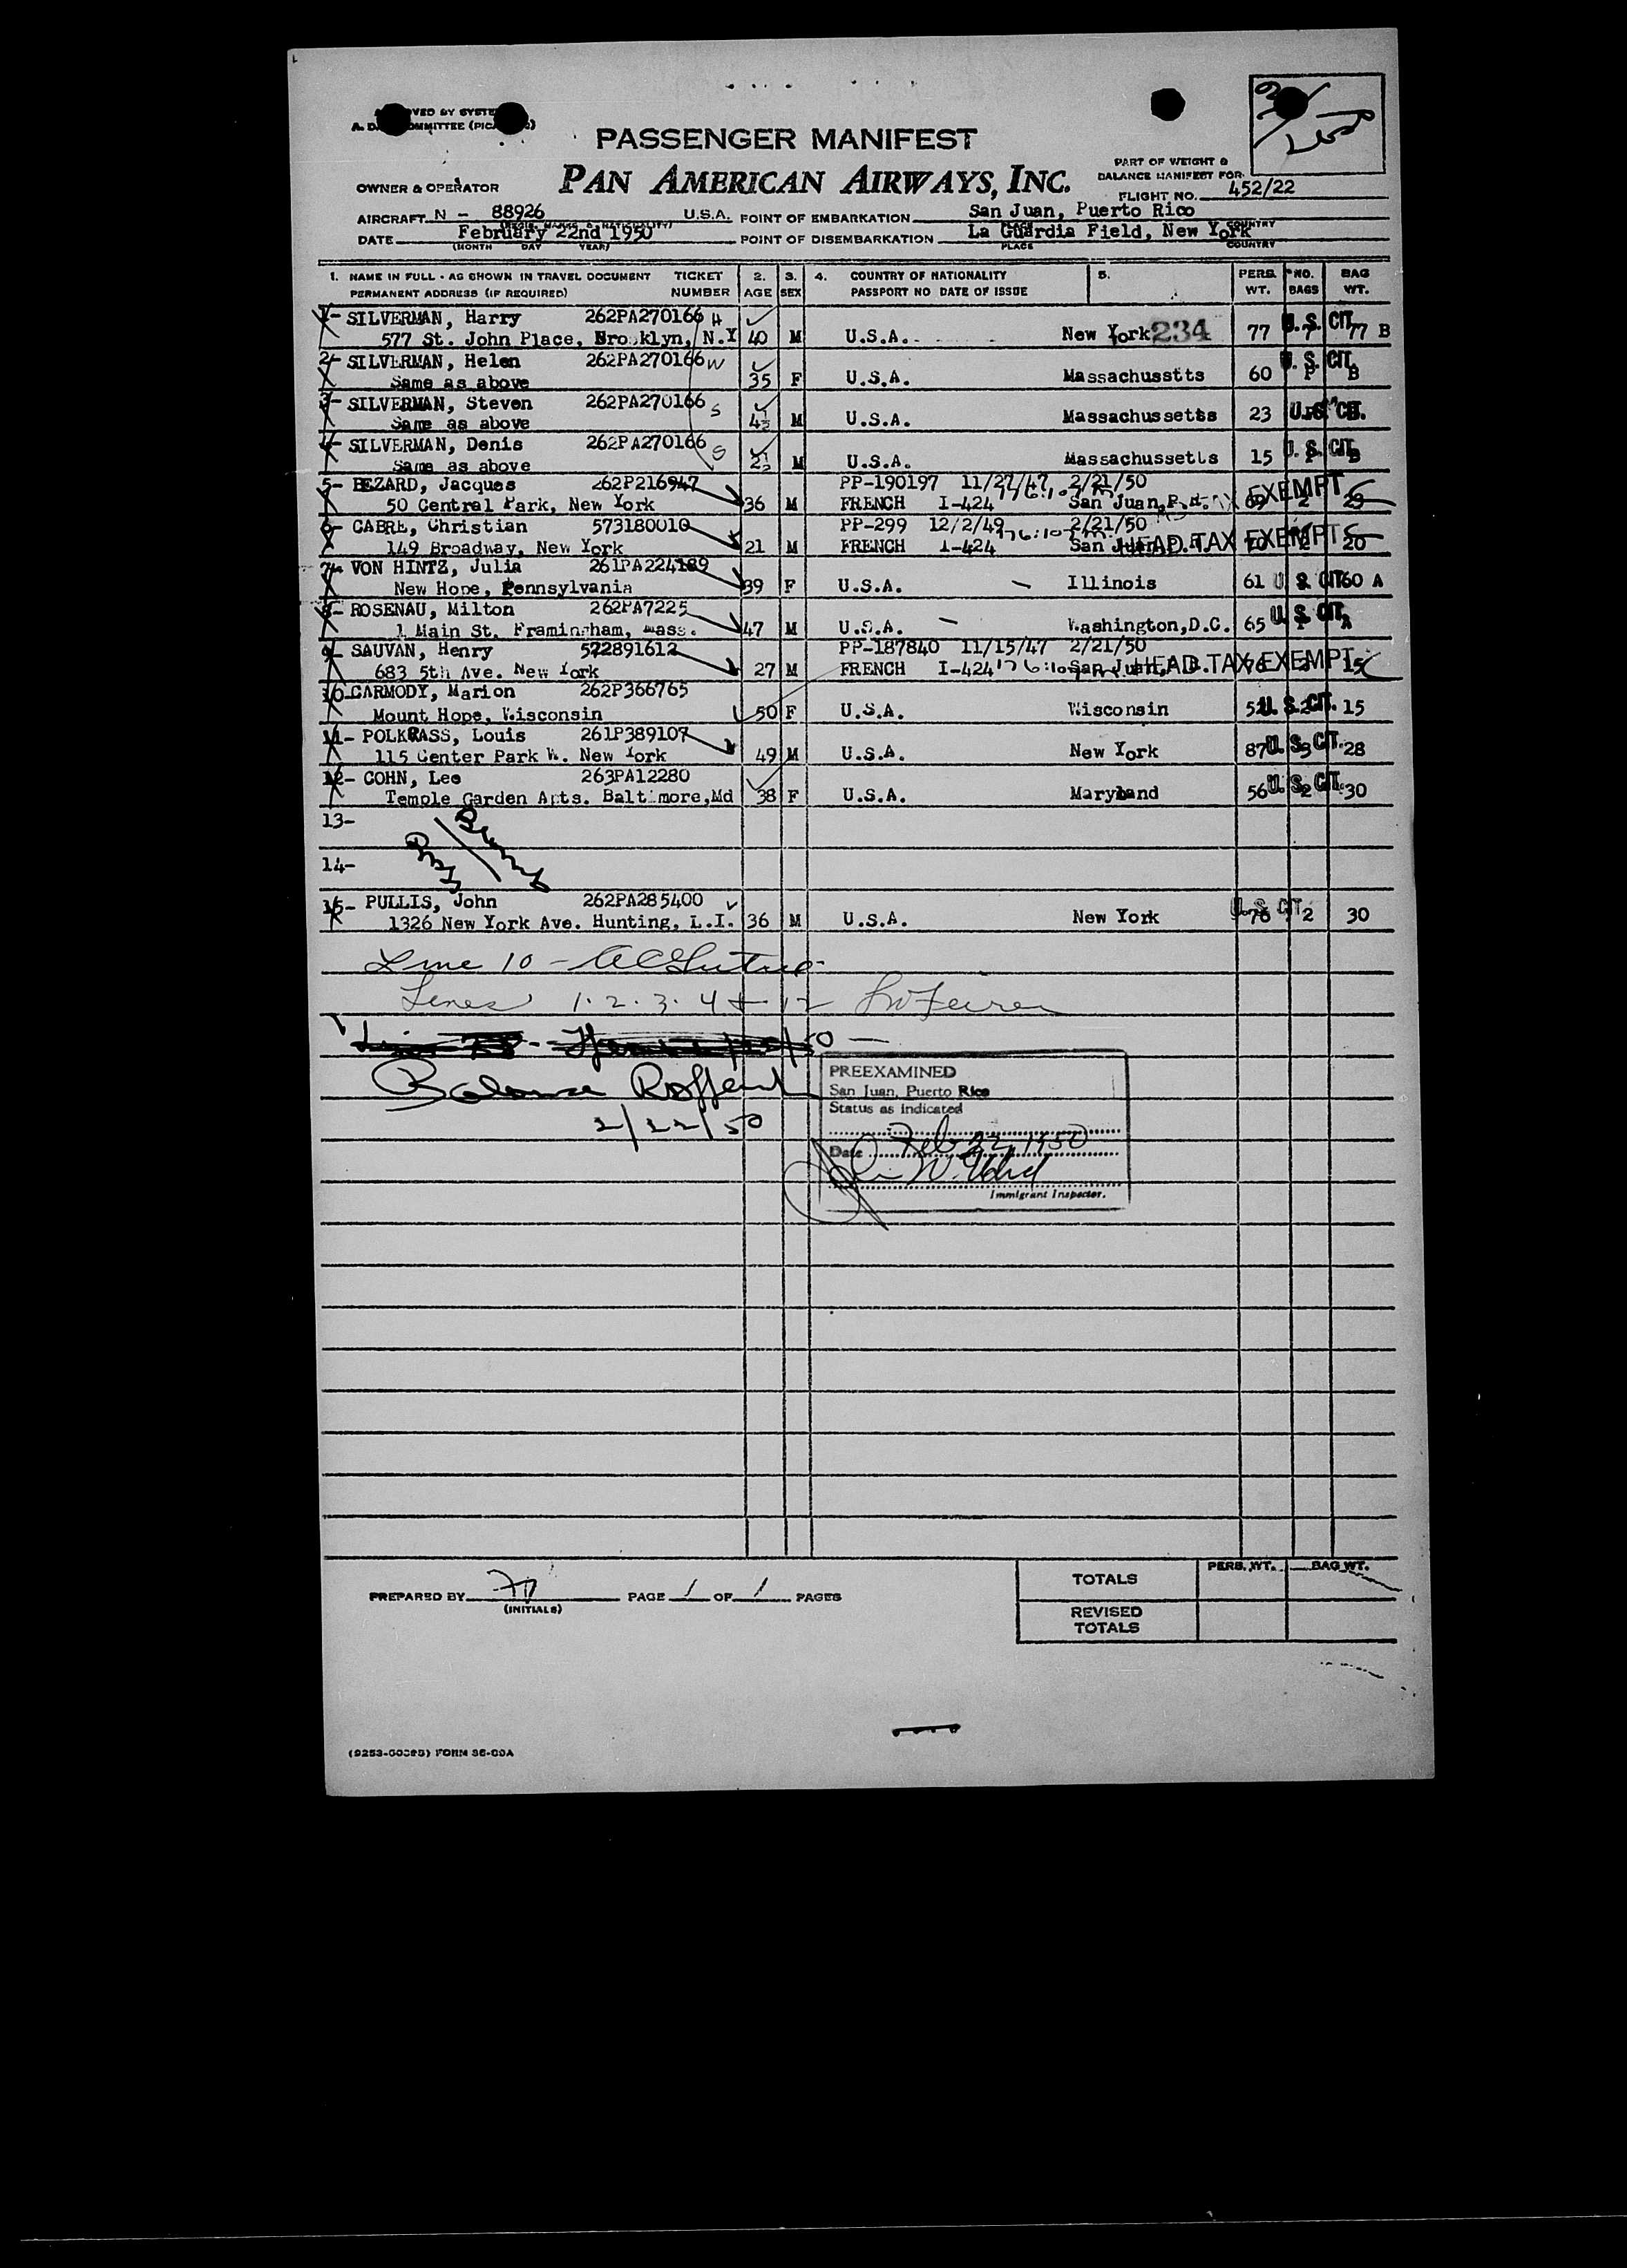 PASSENGER MANIFEST
PART OF WEIGHT &
BALANCE MANIFEST FOR:
OWNER & OPERATOR PAN AMERICAN AIRWAYS, INC.
FLIGHT NO. 452/22
AIRCRAFT N - 88926 U.S.A. POINT OF EMBARKATION San Juan, Puerto Rico
DATE February 22nd 1950 POINT OF DISEMBARKATION La Guardia Field, New York
(MONTH DAY YEAR) PLACE COUNTRY
1. NAME IN FULL - AS SHOWN IN TRAVEL DOCUMENT TICKET 2. 3. 4. COUNTRY OF NATIONALITY 5. PERS. NO. BAG
PERMANENT ADDRESS (IF REQUIRED) NUMBER AGE SEX PASSPORT NO DATE OF ISSUE WT. BAGS WT.
1- SILVERMAN, Harry 262PA270166 H
577 St. John Place, Brooklyn, N.Y 40 M U.S.A. New York 234 77 7 77 B U.S. CIT.
2- SILVERMAN, Helen 262PA270166 W
Same as above 35 F U.S.A. Massachusstts 60 B U.S. CIT.
3- SILVERMAN, Steven 262PA270166 S
Same as above 4½ M U.S.A. Massachussetss 23 U.S. CIT.
4- SILVERMAN, Denis 262PA270166 S
Same as above 2½ M U.S.A. Massachussetts 15 B U.S. CIT.
5- BEZARD, Jacques 262P216947 PP-190197 11/27/47 2/21/50
50 Central Park, New York 36 M FRENCH I-424 San Juan, P.R. 2 25 EXEMPT
6- CABRE, Christian 573180010 PP-299 12/2/49 2/21/50
149 Broadway, New York 21 M FRENCH I-424 San Juan 20 HEAD TAX EXEMPT
7- VON HINTZ, Julia 261PA224189
New Hope, Pennsylvania 39 F U.S.A. Illinois 61 60 A U.S. CIT
8- ROSENAU, Milton 262PA7225
1 Main St. Framingham, Mass. 47 M U.S.A. Washington, D.C. 65 A U.S. CIT.
9- SAUVAN, Henry 572891612 PP-187840 11/15/47 2/21/50
683 5th Ave. New York 27 M FRENCH I-424 San Juan 15 HEAD TAX EXEMPT
10- CARMODY, Marion 262P366765
Mount Hope, Wisconsin 50 F U.S.A. Wisconsin 52 2 15 U.S. CIT.
11- POLKRASS, Louis 261P389107
115 Center Park W. New York 49 M U.S.A. New York 87 3 28 U.S. CIT.
12- COHN, Lee 263PA12280
Temple Garden Apts. Baltimore, Md 38 F U.S.A. Maryland 56 2 30 U.S. CIT.
13-
14-
15- PULLIS, John 262PA285400
1326 New York Ave. Hunting, L.I. 36 M U.S.A. New York 76 2 30 U.S. CIT.
Line 10 -
Lines 1.2.3.4 + 12
Balance
2/22/50
PREEXAMINED
San Juan, Puerto Rico
Status as indicated
Date Feb 22, 1950
Immigrant Inspector.
PREPARED BY PAGE 1 OF 1 PAGES
(INITIALS)
PERS. WT. BAG WT.
TOTALS
REVISED
TOTALS